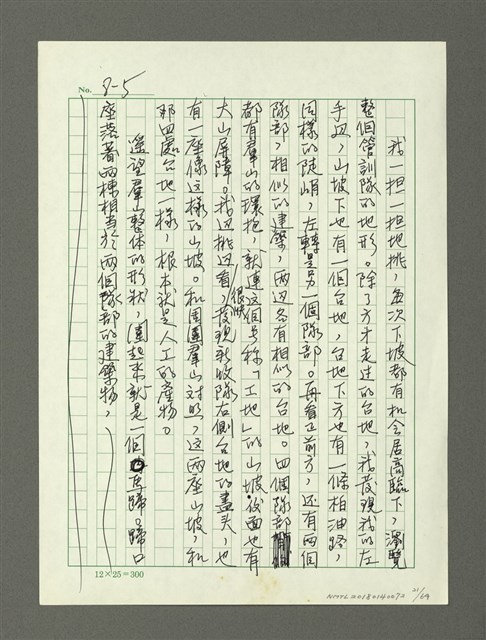 No. 8-5
我一担一担地挑，每次下坡都有机会居高臨下，瀏覽
整個管訓隊的地形。除了方才走过的台地，我发現我的左
手边，山坡下也有一個台地，台地下方也有一條柏油路，
同樣的陡峭，左轉是另一個隊部。再看正前方，还有兩個
隊部，相似的建築，兩边各有相似的台地。四個隊部
都有羣山的環抱，就連这個号称「工地」的山坡後面也有
大山屏障。我边挑边看，很快发現新收隊右側台地的盡头，也
有一座像这樣的山坡。和周圍羣山对照，这兩座山坡，和
那四處台地一樣，根本就是人工的產物。
遥望羣山整体的形狀，圍起來就是一個馬蹄。蹄口
座落著兩棟相当於兩個隊部的建築物，
12×25=300
NMTL20180140072
21/64